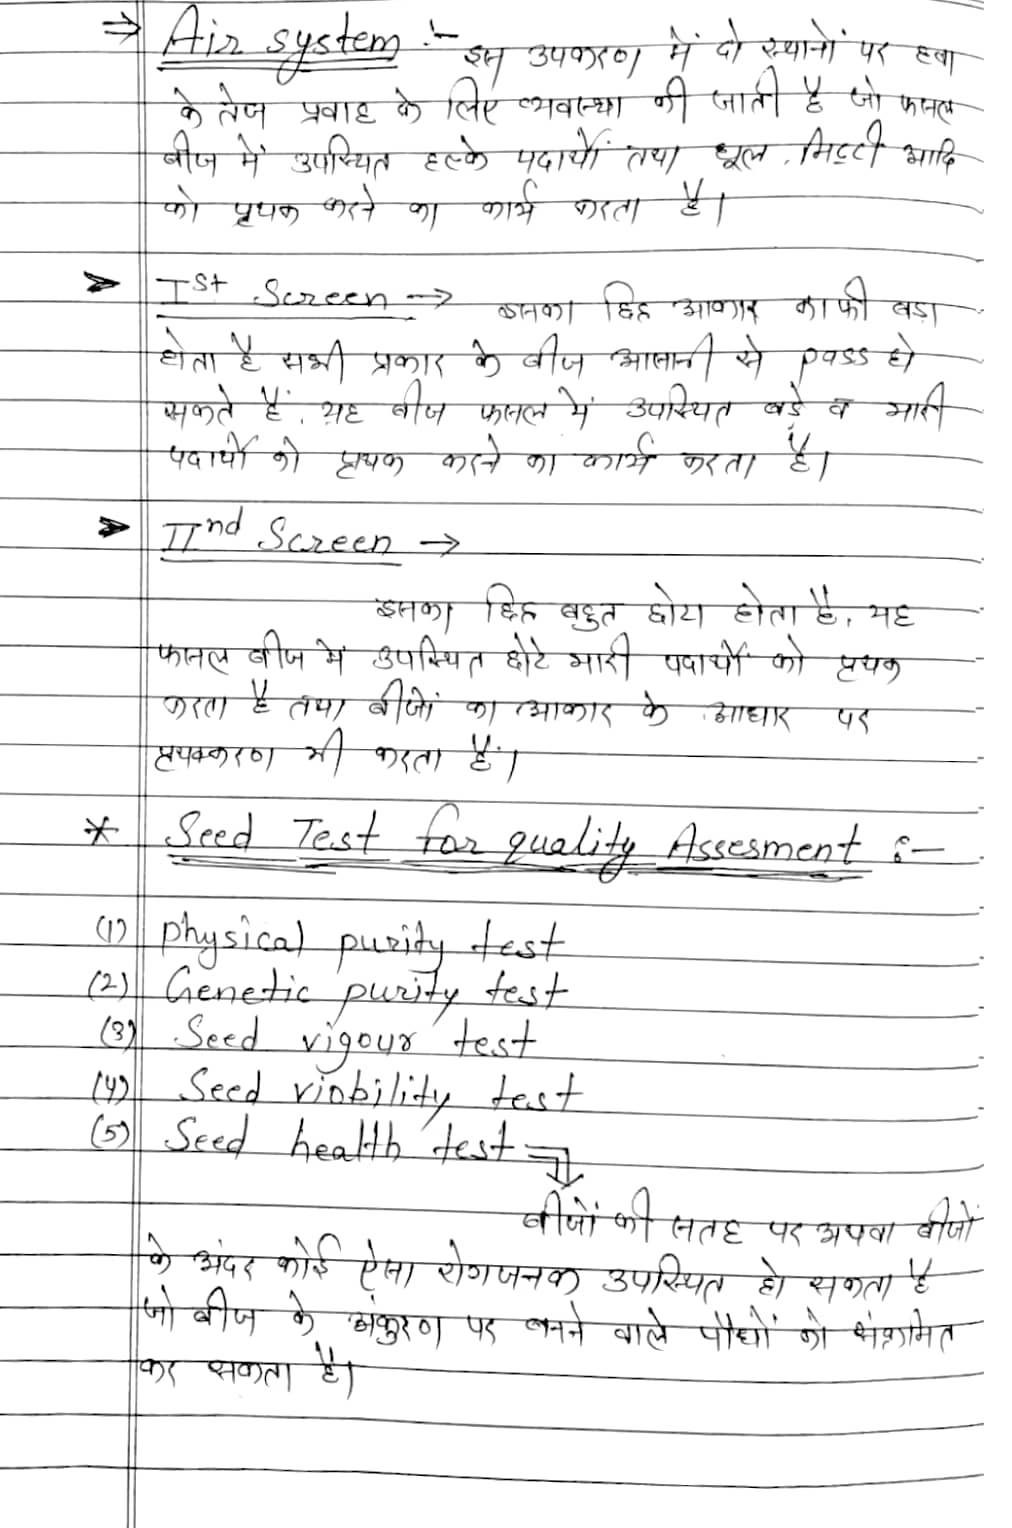 ⇒ Air system :- इस उपकरण में दो स्थानों पर हवा
के तेज प्रवाह के लिए व्यवस्था की जाती है जो फसल
बीज में उपस्थित हल्के पदार्थों तथा धूल, मिट्टी आदि
को पृथक करने का कार्य करता है।
➤ Ist Screen → इसका छिद्र आकार काफी बड़ा
होता है सभी प्रकार के बीज आसानी से pass हो
सकते हैं, यह बीज फसल में उपस्थित बड़े व भारी
पदार्थों को पृथक करने का कार्य करता है।
➤ IInd Screen →
इसका छिद्र बहुत छोटा होता है, यह
फसल बीज में उपस्थित छोटे भारी पदार्थों को पृथक
करता है तथा बीजों का आकार के आधार पर
पृथक्करण भी करता है।
* Seed Test for quality Assesment :-
(1) physical purity test
(2) Genetic purity test
(3) Seed vigour test
(4) Seed viability test
(5) Seed health test
बीजों की सतह पर अथवा बीजों
के अंदर कोई ऐसा रोगजनक उपस्थित हो सकता है
जो बीज के अंकुरण पर बनने वाले पौधों को संक्रमित
कर सकता है।